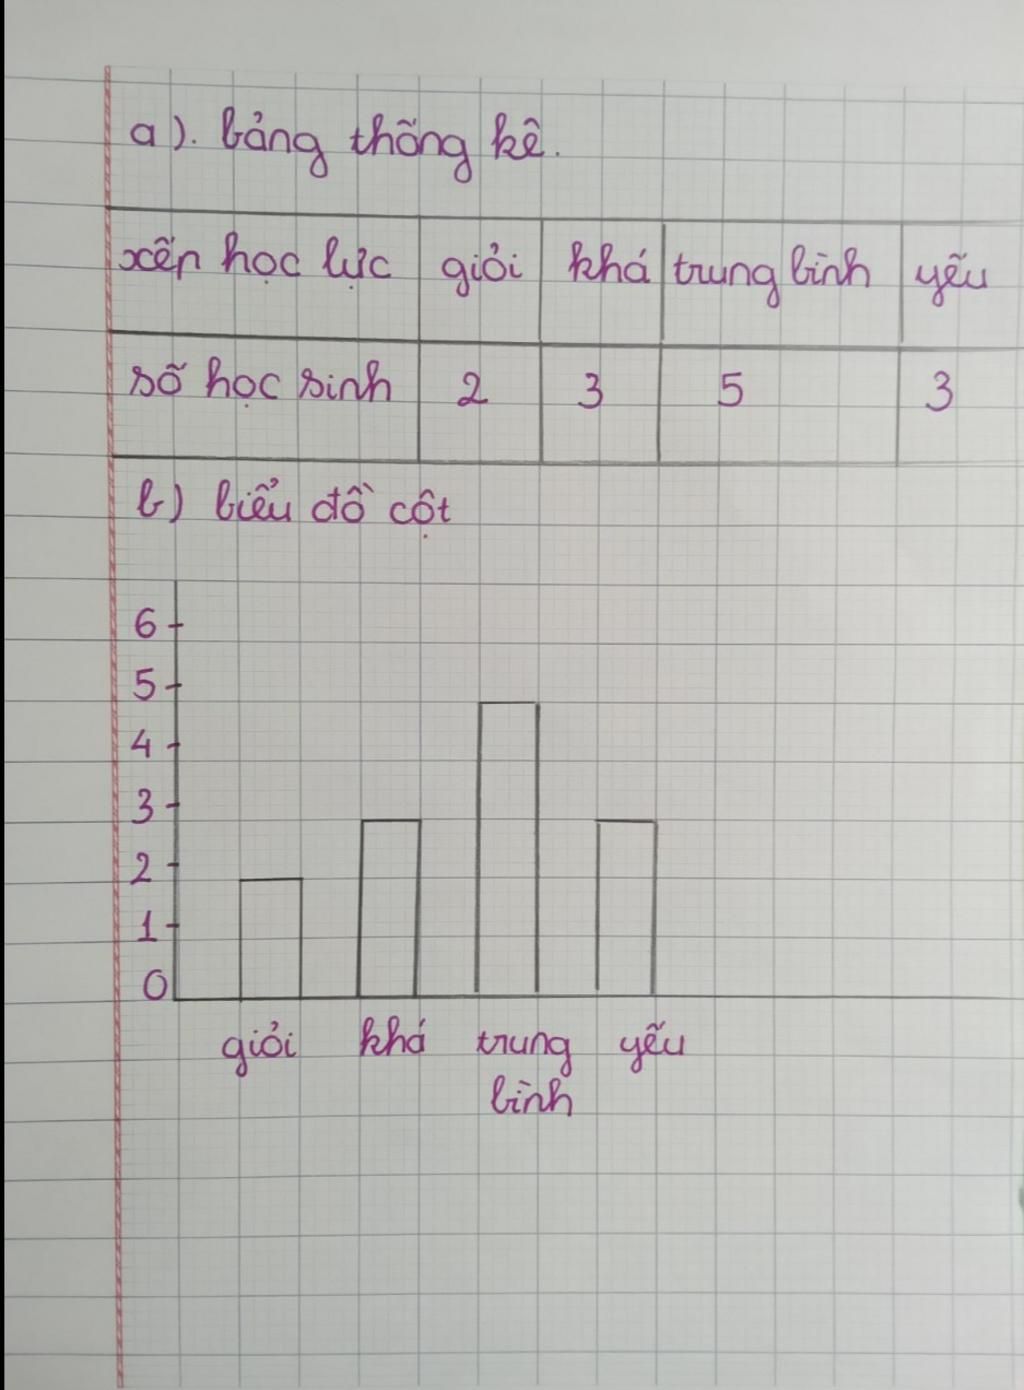 a). bảng thống kê.
xếp học lực giỏi khá trung bình yếu
số học sinh 2 3 5 3
b) biểu đồ cột
6
5
4
3
2
1
0
giỏi khá trung yếu
bình